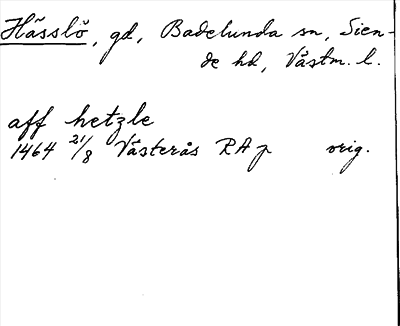 Hässlö, gd, Badelunda sn, Sien-
de hd, Västm. l.
aff hetzle
1464 21/8 Västerås RA p orig.